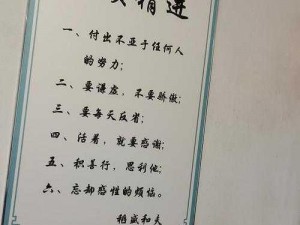 精进
一、付出不亚于任何人
的努力;
二、要谦虚、不要骄傲;
三、要每天反省;
四、活着，就要感谢;
五、积善行、思利他;
六、忘却感性的烦恼。
稻盛和夫